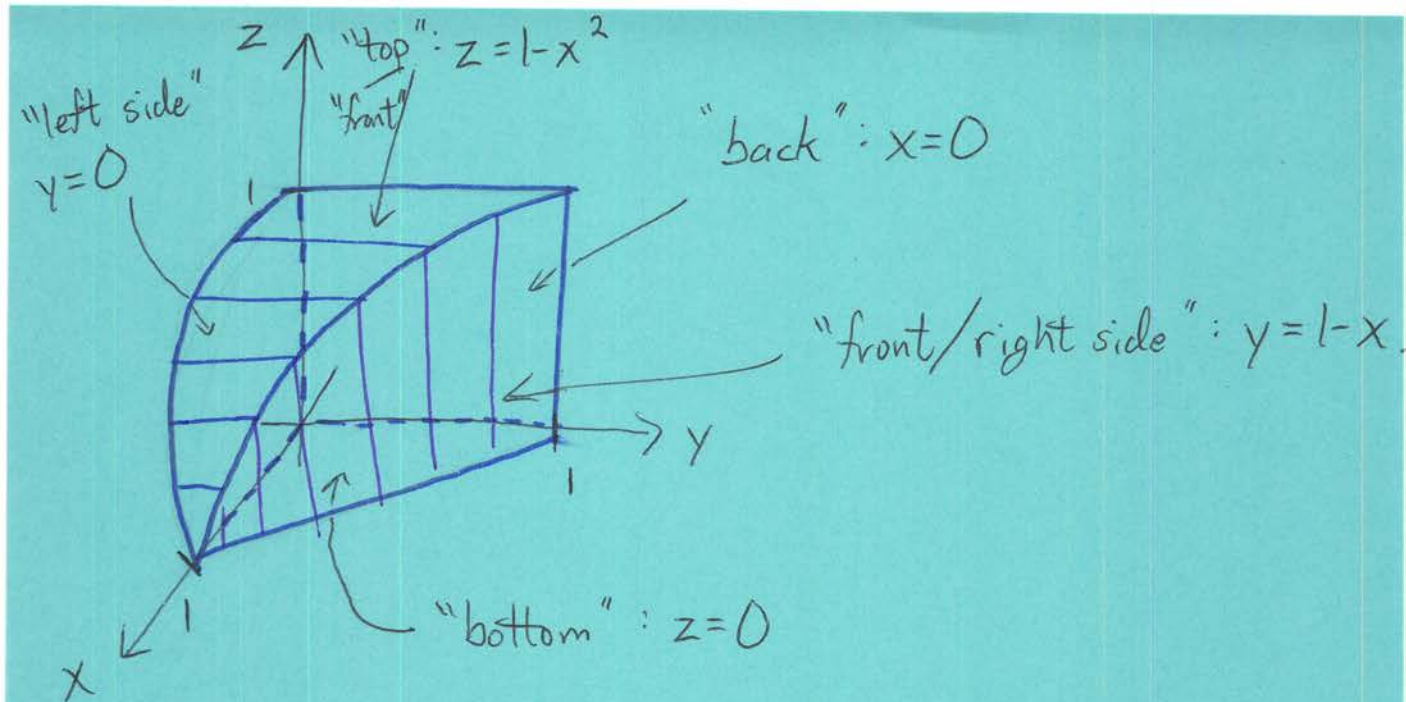 Z
"top": z = 1-x²
"front"
"left side"
y=0
"back": x=0
1
"front/right side": y = 1-x.
y
1
1
"bottom": z=0
x